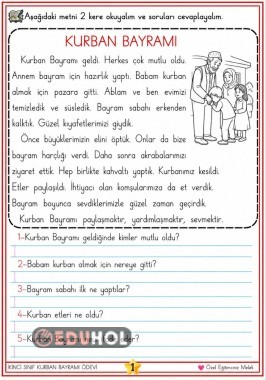 Aşağıdaki metni 2 kere okuyalım ve soruları cevaplayalım.
KURBAN BAYRAMI
Kurban Bayramı geldi. Herkes çok mutlu oldu.
Annem bayram için hazırlık yaptı. Babam kurban
almak için pazara gitti. Ablam ve ben evimizi
temizledik ve süsledik. Bayram sabahı erkenden
kalktık. Güzel kıyafetlerimizi giydik.
Önce büyüklerimizin elini öptük. Onlar da bize
bayram harçlığı verdi. Daha sonra akrabalarımızı
ziyaret ettik. Hep birlikte kahvaltı yaptık. Kurbanımız kesildi.
Etler paylaşıldı. İhtiyacı olan komşularımıza da et verdik.
Bayram boyunca sevdiklerimizle güzel zaman geçirdik.
Kurban Bayramı paylaşmaktır, yardımlaşmaktır, sevmektir.
1-Kurban Bayramı geldiğinde kimler mutlu oldu?
2-Babam kurban almak için nereye gitti?
3-Bayram sabahı ilk ne yaptılar?
4-Kurban etleri ne oldu?
5-Kurban
EDUHOL
İKİNCİ SINIF KURBAN BAYRAMI ÖDEVİ
1
Özel Eğitimcine Melek